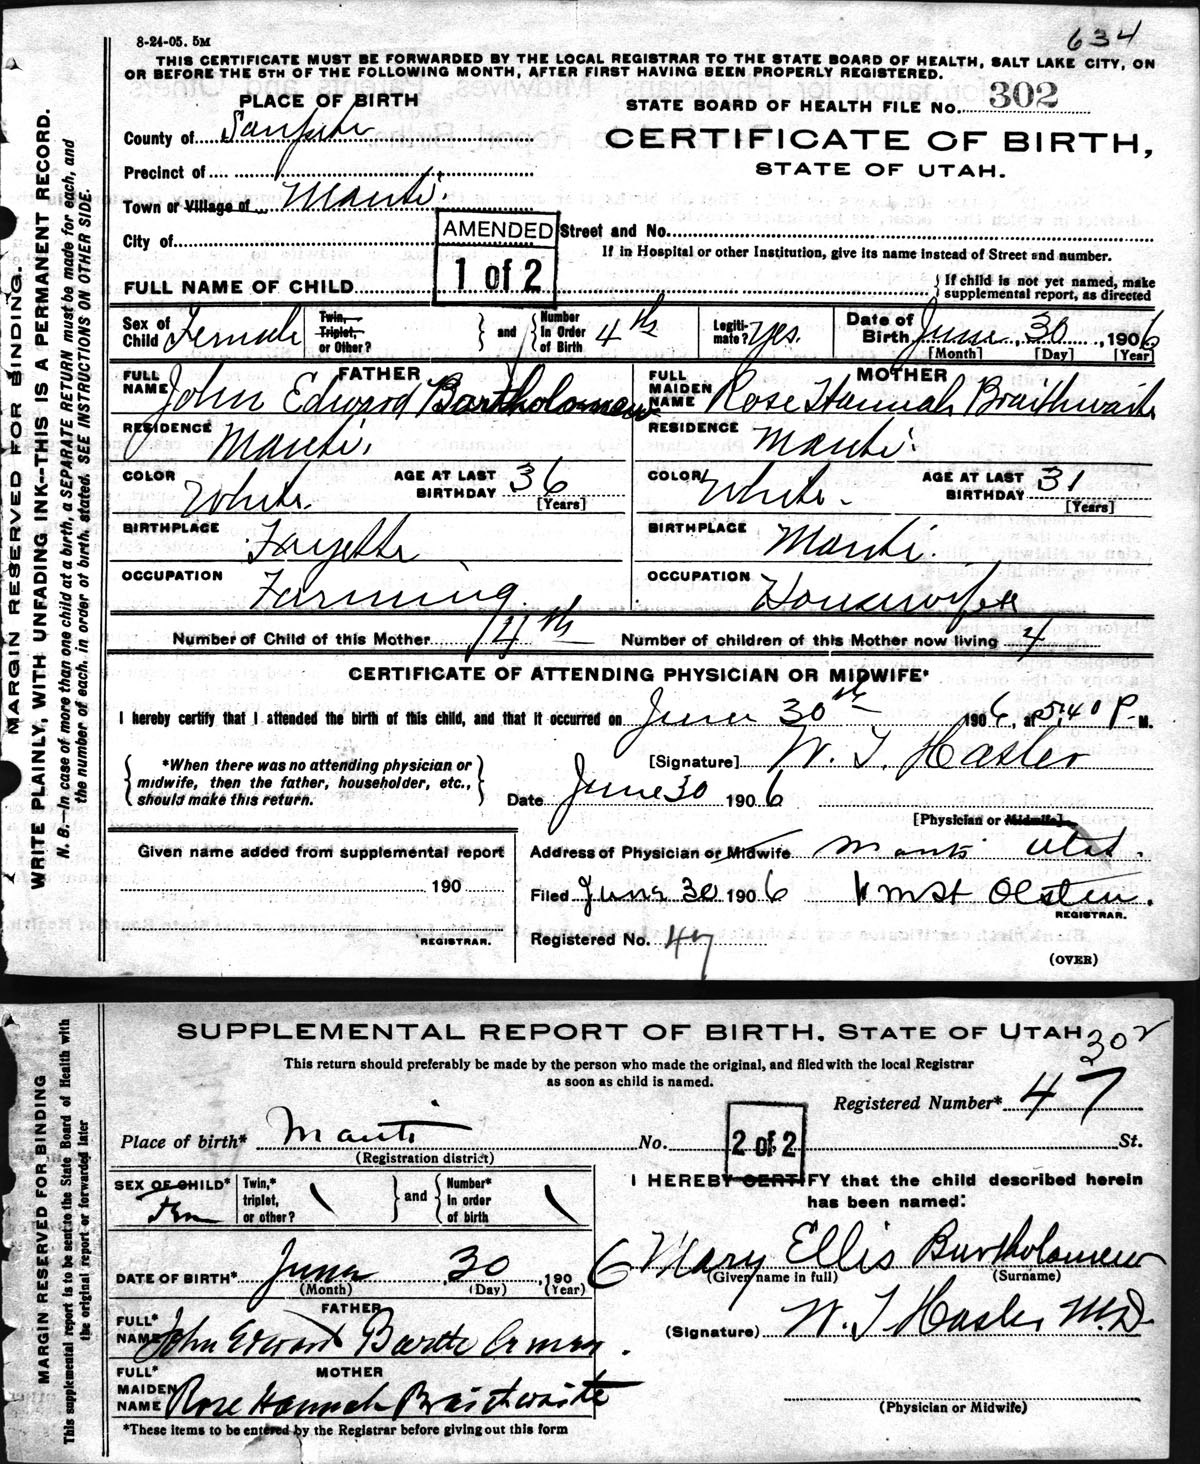 634
8-24-05. 5M
THIS CERTIFICATE MUST BE FORWARDED BY THE LOCAL REGISTRAR TO THE STATE BOARD OF HEALTH, SALT LAKE CITY, ON
OR BEFORE THE 5TH OF THE FOLLOWING MONTH, AFTER FIRST HAVING BEEN PROPERLY REGISTERED.
MARGIN RESERVED FOR BINDING.
WRITE PLAINLY, WITH UNFADING INK--THIS IS A PERMANENT RECORD.
N. B.—In case of more than one child at a birth, a SEPARATE RETURN must be made for each, and
the number of each, in order of birth, stated. SEE INSTRUCTIONS ON OTHER SIDE.
PLACE OF BIRTH
County of Sanpete
Precinct of
Town or Village of Manti.
City of
STATE BOARD OF HEALTH FILE No. 302
CERTIFICATE OF BIRTH,
STATE OF UTAH.
AMENDED
1 of 2
Street and No.
If in Hospital or other Institution, give its name instead of Street and number.
FULL NAME OF CHILD
If child is not yet named, make
supplemental report, as directed
Sex of Child Female
Twin, Triplet, or Other?
and
Number In Order of Birth 4th
Legitimate? Yes.
Date of Birth June 30, 1906
[Month] [Day] [Year]
FATHER
FULL NAME John Edward Bartholomew
RESIDENCE Manti.
COLOR White.
AGE AT LAST BIRTHDAY 36
[Years]
BIRTHPLACE Fayette
OCCUPATION Farming
MOTHER
FULL MAIDEN NAME Rose Hannah Braithwaite
RESIDENCE Manti.
COLOR White.
AGE AT LAST BIRTHDAY 31
[Years]
BIRTHPLACE Manti.
OCCUPATION Housewife
Number of Child of this Mother 4th
Number of children of this Mother now living 4
CERTIFICATE OF ATTENDING PHYSICIAN OR MIDWIFE*
I hereby certify that I attended the birth of this child, and that it occurred on June 30th 1906, at 5:40 P. M.
*When there was no attending physician or
midwife, then the father, householder, etc.,
should make this return.
[Signature] W. T. Hasler
Date June 30 1906
[Physician or Midwife]
Given name added from supplemental report
190
REGISTRAR.
Address of Physician or Midwife Manti Utah.
Filed June 30 1906 Olsten.
REGISTRAR.
Registered No. 47
(OVER)
MARGIN RESERVED FOR BINDING
This supplemental report is to be sent to the State Board of Health with
the original report or forwarded later
SUPPLEMENTAL REPORT OF BIRTH. STATE OF UTAH
302
This return should preferably be made by the person who made the original, and filed with the local Registrar
as soon as child is named.
Registered Number* 47
Place of birth* Manti No. St.
(Registration district)
2 of 2
SEX OF CHILD* Fem
Twin,* triplet, or other?
and
Number* in order of birth
DATE OF BIRTH* June 30, 1906
(Month) (Day) (Year)
FATHER
FULL* NAME John Edward
MOTHER
FULL* MAIDEN NAME Rose Hannah Braithwaite
*These items to be entered by the Registrar before giving out this form
I HEREBY CERTIFY that the child described herein
has been named:
Mary Ellis Bartholomew
(Given name in full) (Surname)
(Signature) W. T. Hasler M.D.
(Physician or Midwife)